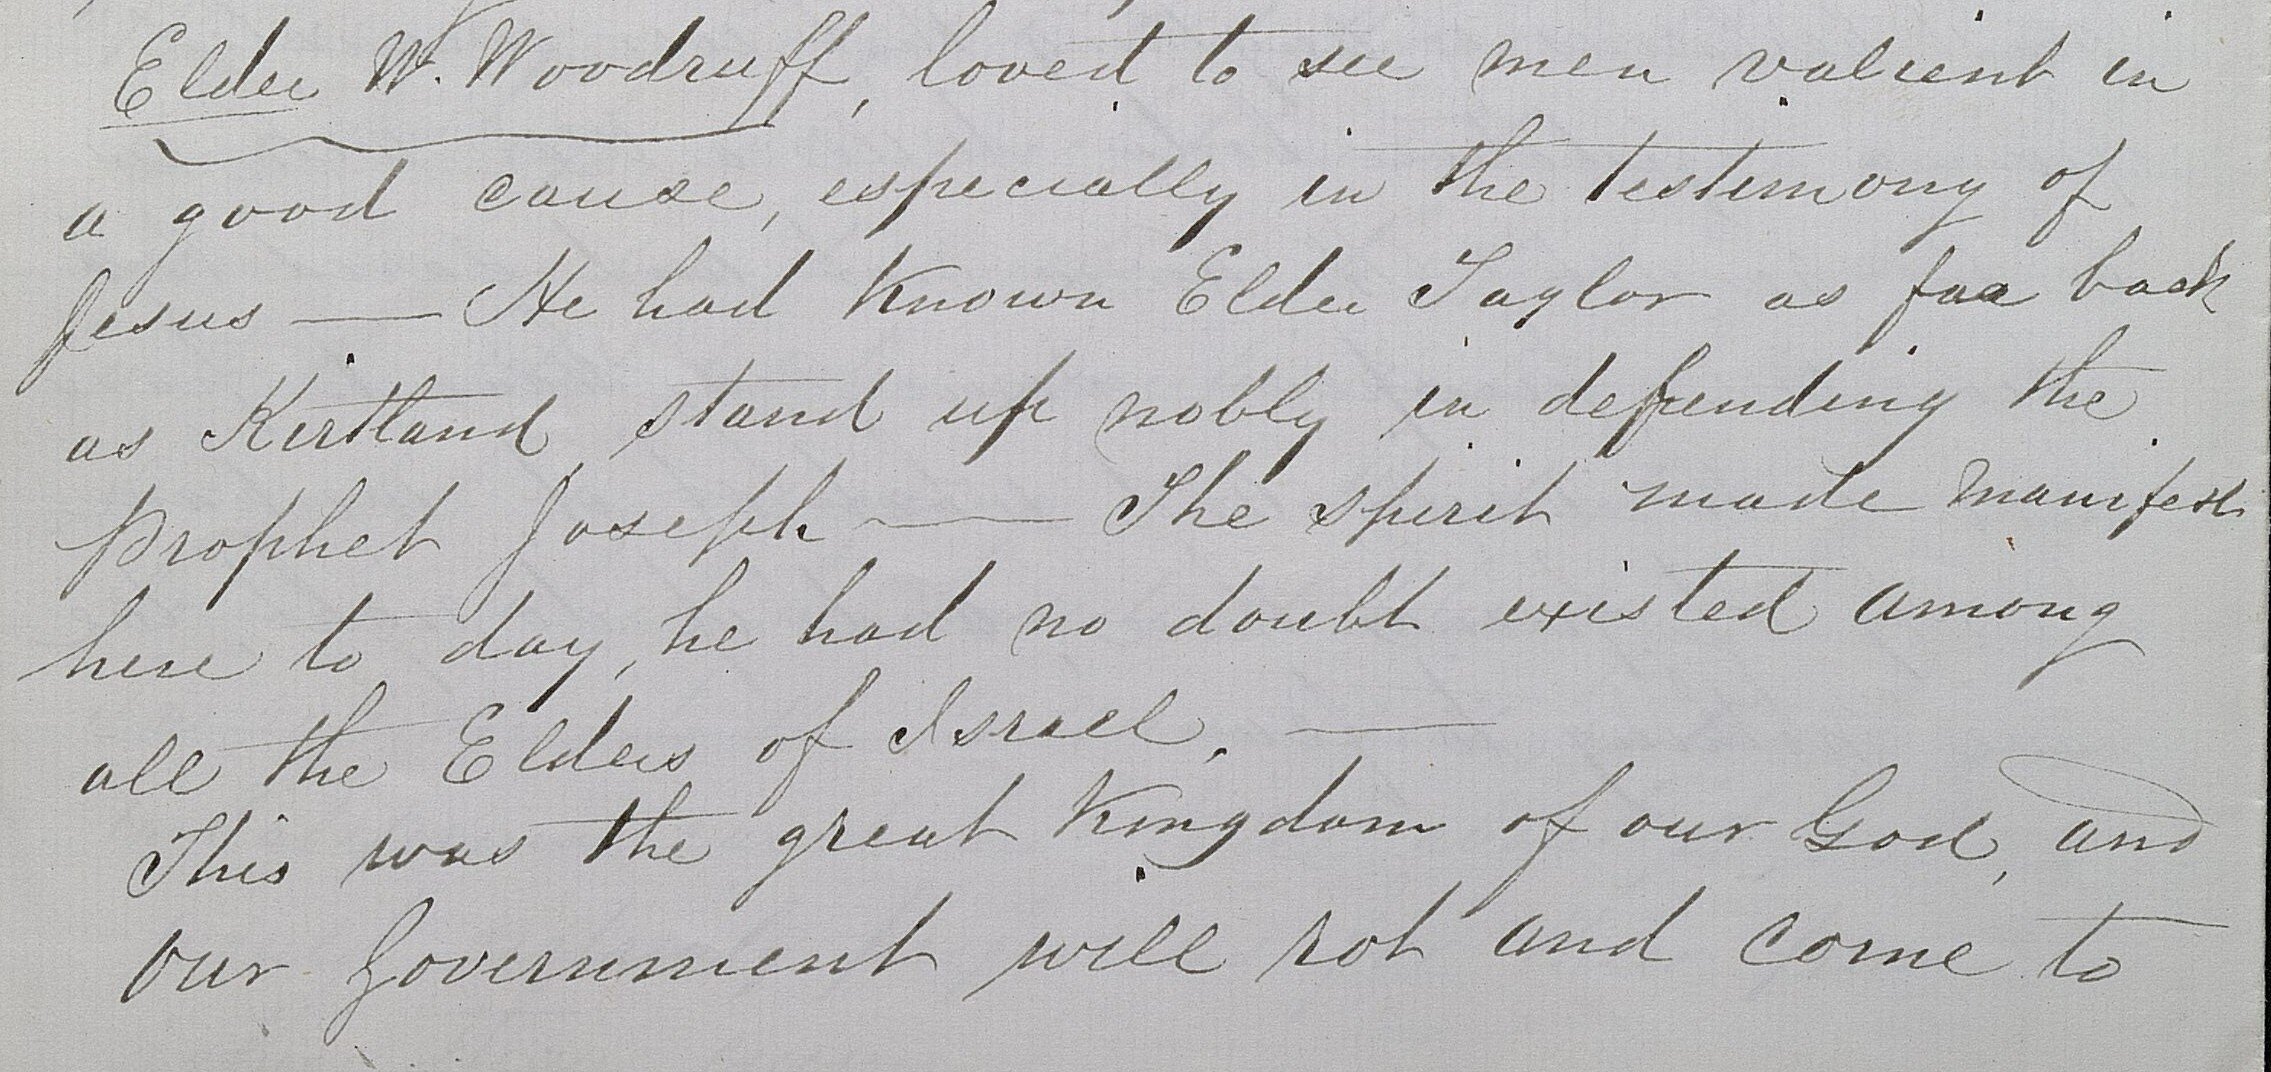 Elder W. Woodruff, loved to see men valient in
a good cause, especially in the testimony of
Jesus — He had known Elder Taylor as far back
as Kirtland stand up nobly in defending the
Prophet Joseph — The spirit made manifest
here to day, he had no doubt existed among
all the Elders of Israel. —
This was the great Kingdom of our God, and
our Government will rot and come to